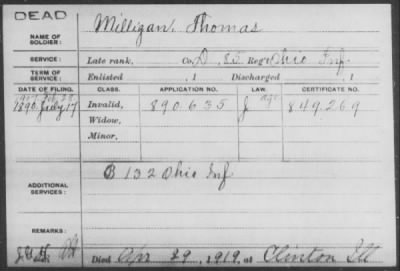 DEAD
NAME OF SOLDIER: Milligan, Thomas
SERVICE: Late rank, Co. D, 85 Reg't Ohio Inf
TERM OF SERVICE: Enlisted , 1 Discharged , 1
DATE OF FILING. CLASS. APPLICATION NO. LAW. CERTIFICATE NO.
1890 July 17 Invalid, 890.635 J age 849.269
Widow,
Minor,
ADDITIONAL SERVICES: B 132 Ohio Inf
REMARKS:
Died Apr 29, 1919, at Clinton Ill